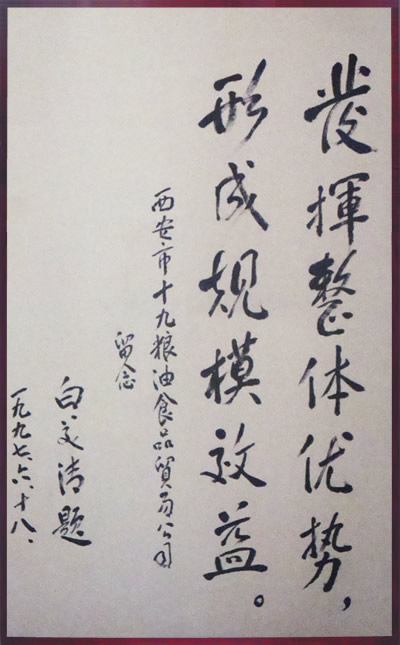 發揮整体优势，
形成规模效益。
西安市十九粮油食品貿易公司
留念
白文清题
一九九七、六、十八、